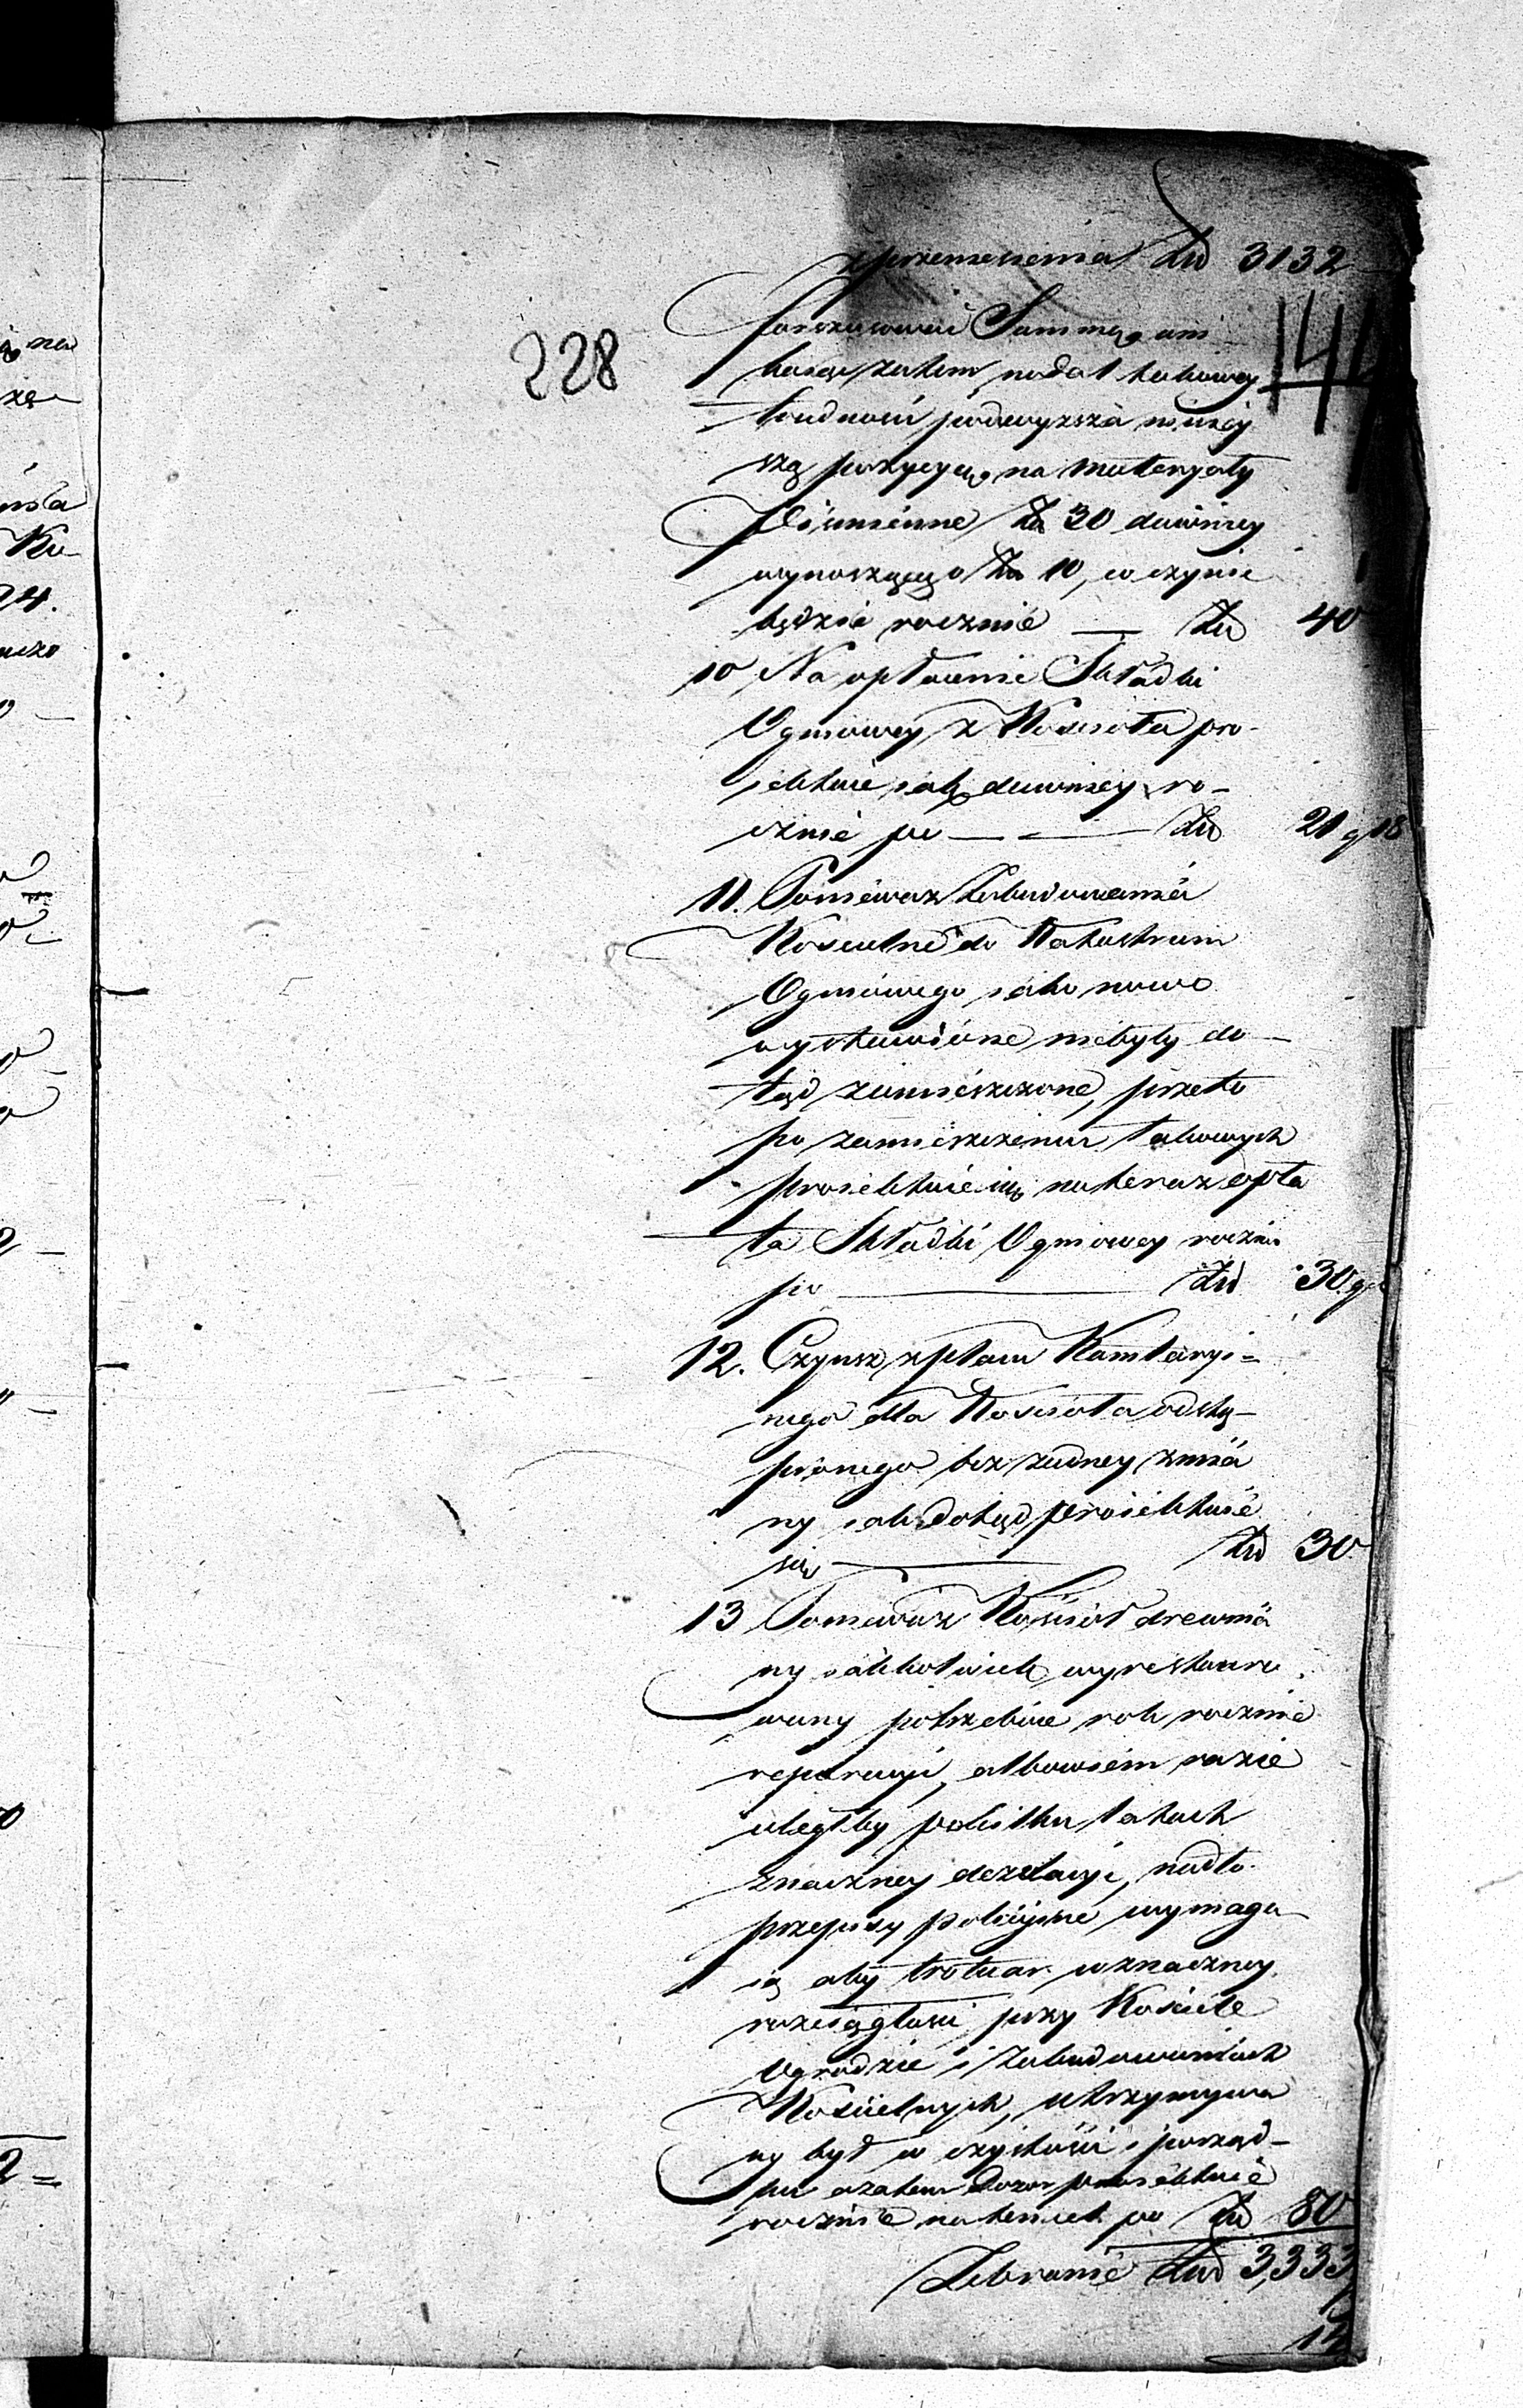 z przeniesienia Złp 3132
228
144
Summę, ani
zatem nadal takowey
trudność podwyższa niniey
szą pozycyę, na materyały
Piśmienne Złp 30 dawniey
wynoszącego Złp 10, co czyni
będzie rocznie — Złp 40
10 Na opłacenie Składki
Ogniowey z Kościoła pro-
iektuie iak dawniey ro-
cznie po — — Złp 21 g 18
11. Ponieważ Zabudowania
Koscielne do Katastrum
Ogniowego iako nowo
wystawione niebyły do-
tąd zamieszczone, przeto
po zamieszczeniu takowych
proiektuie się na teraz opła
ta Składki Ogniowey roczni
po — Złp 30 g
12. Czynsz z placu Kamlaryi-
nego dla Kościoła odstą-
pionego bez żadney zmia
ny iak dotąd proiektuie
się — Złp 30
13 Ponieważ Kościół drewnia
ny iakkolwiek wyrestauro
wany potrzebuie rok rocznie
reperacyi, albowiem razie
uległby po kilku latach
znaczney dezolacyi, nadto
przepisy policyine wymaga
ią aby trotuar w znaczney
rozciągłości przy Kościele
Ogrodzie i Zabudowaniach
Kościelnych, utrzymywa
ny był w czystości i porząd-
ku a zatem Dozor proiektuie
rocznie na ten cel po Złp 80
Zebranie Złp 3,333